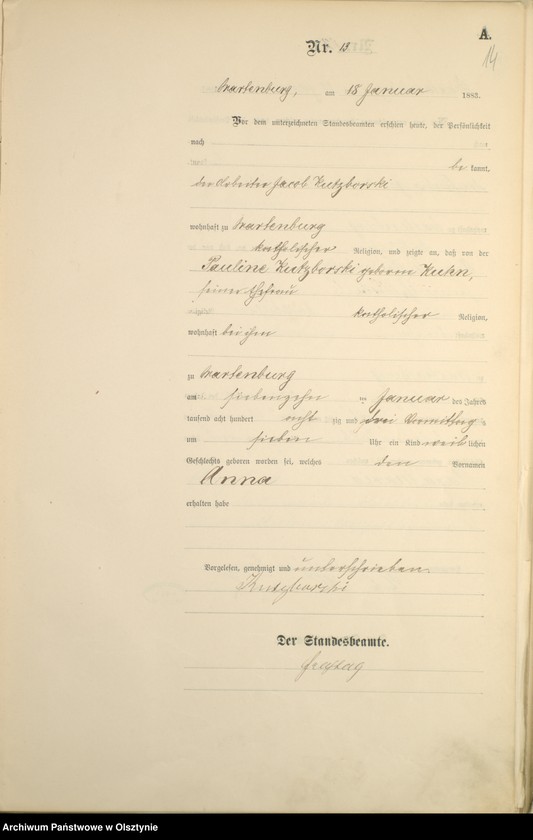 A.
14
Nr. 13
Wartenburg, am 18 Januar 1883.
Vor dem unterzeichneten Standesbeamten erschien heute, der Persönlichkeit
nach
be kannt,
der Arbeiter Jacob Kutzborski
wohnhaft zu Wartenburg
katholischer Religion, und zeigte an, daß von der
Pauline Kutzborski geborenen Kuhn,
seiner Ehefrau
katholischer Religion,
wohnhaft bei ihm
zu Wartenburg
am siebenzehn ten Januar des Jahres
tausend acht hundert acht zig und drei Vormittags
um sieben Uhr ein Kind weib lichen
Geschlechts geboren worden sei, welches den Vornamen
Anna
erhalten habe
Vorgelesen, genehmigt und unterschrieben.
Kutzborski
Der Standesbeamte.
Freytag
Archiwum Państwowe w Olsztynie